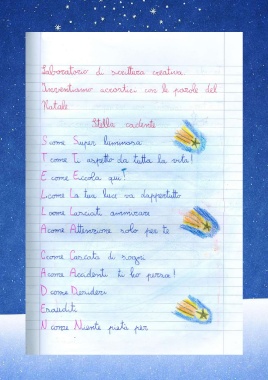 Laboratorio di scrittura creativa.
Inventiamo acrostici con le parole del
Natale
Stella cadente
S come Super luminosa
T come Ti aspetto da tutta la vita!
E come Eccola qui!
L come La tua luce va dappertutto
L come Lasciati ammirare
A come Attenzione solo per te
C come Cascata di sogni
A come Accidenti ti ho persa!
D come Desideri
E
N come Niente pietà per